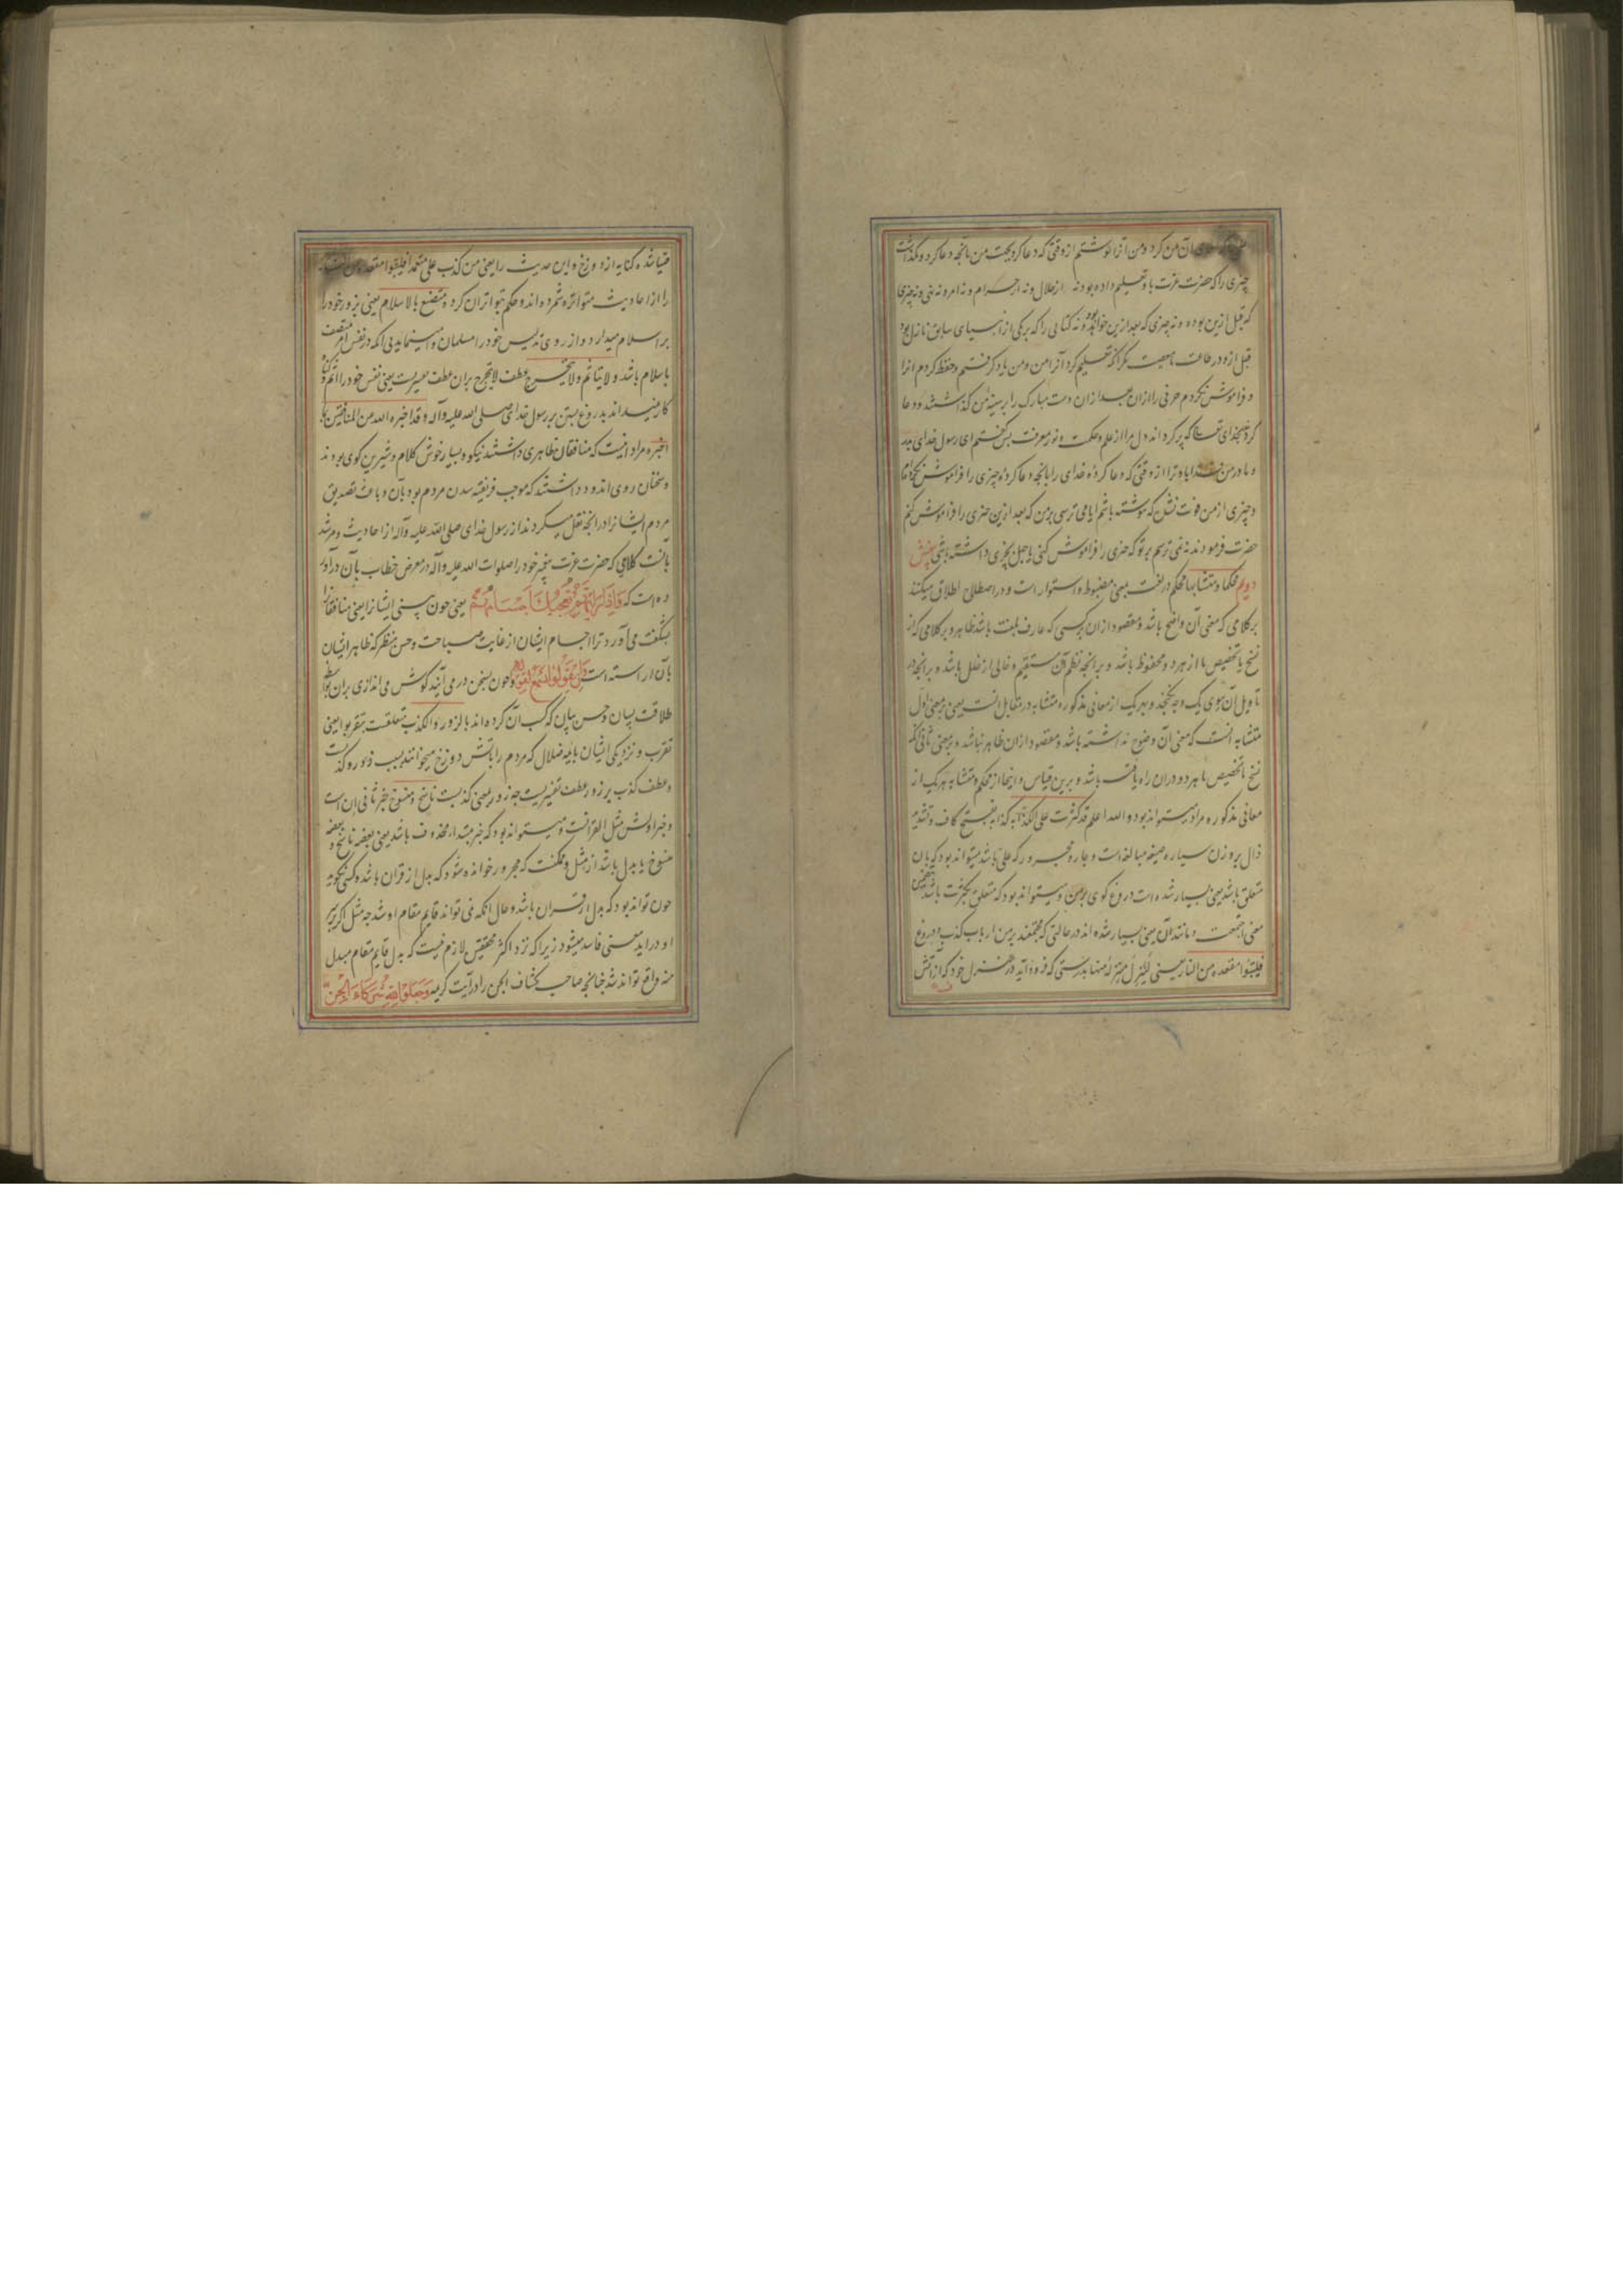 آن من کرد و من آنرا نوشتم از وقتی که دعا کرد بجهت من بآنچه دعا کرد و نگذاشت
چیزی را که حضرت عزت باو تعلیم داده بود نه از حلال و نه از حرام و نه امر و نه نهی و نه چیزی
که قبل ازین بوده و نه چیزی که بعد ازین خواهد بود و نه کتابی را که بر یکی از انبیای سابق نازل بود
قبل ازو در طاعت یا معصیت مگر آنکه تعلیم کرد آنرا بمن و من یاد گرفتم و حفظ کردم آنرا
و فراموش نکردم حرفی را از آن بعد از ان دست مبارک را بر سینه من گذاشتند و دعا
کردند بخدای تعالی که پر گرداند دل مرا از علم و حکمت و نور معرفت پس گفتم ای رسول خدای پدر
و مادر من فدا باد ترا از وقتی که دعا کردۀ خدای را بآنچه دعا کردۀ چیزی را فراموش نکرده‌ام
و چیزی از من فوت نشد که ننوشته باشم آیا می ترسی بر من که بعد ازین چیزی را فراموش کنم
حضرت فرمودند نه نمی ترسم بر تو که چیزی را فراموش کنی یا جهل بچیزی داشته باشی بخش
دویم محکما و متشابها محکم در لغت بمعنی مضبوط و استوار است و در اصطلاح اطلاق میکنند
بر کلامی که معنی آن واضح باشد و مقصود ازان بر کسی که عارف بلغت باشد ظاهر و بر کلامی که از
نسخ یا تخصیص یا از هر دو محفوظ باشد و بر آنچه نظم آن مستقیم و خالی از خلل باشد و بر آنچه در
تاویل آن سوی یک وجه نگنجد و بهر یک از معانی مذکوره متشابه در مقابل آنست یعنی بر معنی اول
متشابه آنست که معنی آن وضوح نداشته باشد و مقصود ازان ظاهر نباشد و بر معنی ثانی آنکه
نسخ یا تخصیص یا هر دو در ان راه یافته باشد و برین قیاس و اینجا از محکم و متشابه هر یک از
معانی مذکوره مراد میتواند بود و الله اعلم قد کثرت علی الکذابة کذابه بفتح کاف و تشدید
ذال بر وزن سیاره صیغه مبالغه است و جار و مجرور که علی باشد میتواند بود که بان
متعلق باشد یعنی بسیار شده است دروغ گوی بر من و میتواند بود که متعلق بکثرت باشد بتضمین
معنی اجتمعت و مانند آن یعنی بسیار شده اند در حالتی که مجتمعند بر من ارباب کذب و دروغ
فلیتبوّا مقعده من النار یعنی لِیَنزِل مَنزِلَهُ منها بدرستی که فرود آید در منزل خود که از آتش
مهیا شده کنایه از دوزخ و این حدیث را یعنی من کذب علی متعمدا فلیتبوا مقعده من النار
را از احادیث متواتره شمرده اند و حکم بتواتر آن کرده متصنع بالاسلام یعنی بزور خود را
بر اسلام میدارد و از روی تدلیس خود را مسلمان وا مینماید بی آنکه در نفس امر متصف
باسلام باشد ولا یتاثم ولا یتحرج عطف لا یتحرج بران عطف تفسیریست یعنی نفس خود را آثم و گناه
کار نمیداند بدروغ بستن بر رسول خدای صلی الله علیه و آله وقد اخبره الله عن المنافقین بما
اخبره مراد اینست که منافقان ظاهری داشتند نیکو و بسیار خوش کلام و شیرین گوی بودند
و سخنان روی اندود داشتند که موجب فریفته شدن مردم بود بآن و باعث تصدیق
مردم ایشانرا در آنچه نقل میکردند از رسول خدای صلی الله علیه و آله از احادیث و مرشد
بآنست کلامی که حضرت عزت پیغمبر خود را صلوات الله علیه و آله در معرض خطاب بآن در آور
ده است که فَاِذَا رَاَیْتَهُمْ تُعْجِبُکَ اَجْسَامُهُمْ یعنی چون بینی ایشانرا یعنی منافقانرا
بشگفت می آورد ترا اجسام ایشان از غایت صباحت و حسن منظر که ظاهر ایشان
بآن آراسته است وَاِنْ یَقُولُوا تَسْمَعْ لِقَوْلِهِمْ و چون بسخن در می آیند گوش می اندازی بران بواسطه
طلاقت لسان و حسن بیان که کسب آن کرده اند بالزور و الکذب متعلقست بتقربوا یعنی
تقرب و نزدیکی ایشان بائمه ضلال که مردم را بآتش دوزخ میخوانند بسبب زور و کذبست
و عطف کذب بر زور عطف تفسیریست چه زور بمعنی کذبست ناسخ و منسوخ خبر ثانی ان است
و خبر اولش مثل القرآنست و میتواند بود که خبر مبتداء محذوف باشد یعنی بعضه ناسخ و بعضه
منسوخ یا بدل باشد از مثل و ممکنست که مجرور خوانده شود که بدل از قران باشد و کسی نگوید
چون تواند بود که بدل از قران باشد و حال آنکه نمی تواند قایم مقام او شد چه مثل اگر بر سر
او در آید معنی فاسد میشود زیرا که نزد اکثر محققین لازم نیست که بدل قایم مقام مبدل
منه واقع تواند شد چنانچه صاحب کشاف الجن را در آیت کریمه وَجَعَلُوا لِلّٰهِ شُرَکَاءَ الْجِنَّ